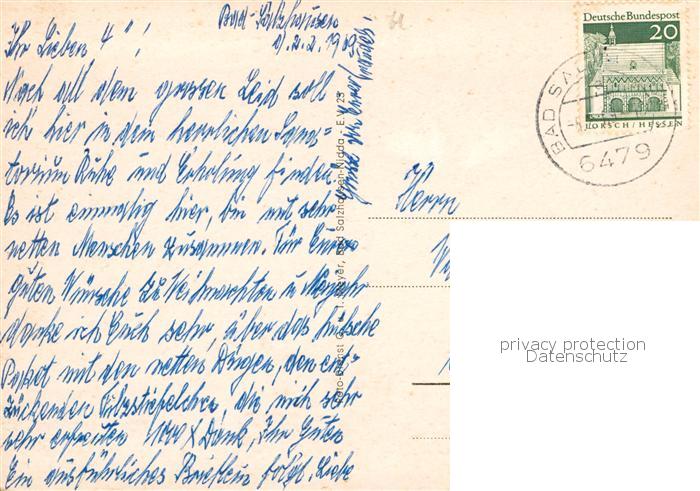 Bad-Salzhausen
d. 2.2.1969
Ihr Lieben 4"!
Nach all dem grossen Leid soll
ich hier in dem herrlichen Sana=
torium Ruhe und Erholung finden.
Es ist einmalig hier, bin mit sehr
netten Menschen zusammen. Für Eure
guten Wünsche zu Weihnachten u Neujahr
danke ich Euch sehr, über das hübsche
Paket mit den netten Dingen, den ent=
zückenden Filzstiefelchen, die mich sehr
sehr erfreuten 1000 x Dank, Ihr Guten
Ein ausführliches Brieflein folgt. Liebe
Grüsse
Foto-Dienst Bad Salzhausen-Nidda - E. V 23
Deutsche Bundespost
20
LORSCH / HESSEN
BAD SAL
6479
Herrn
privacy protection
Datenschutz